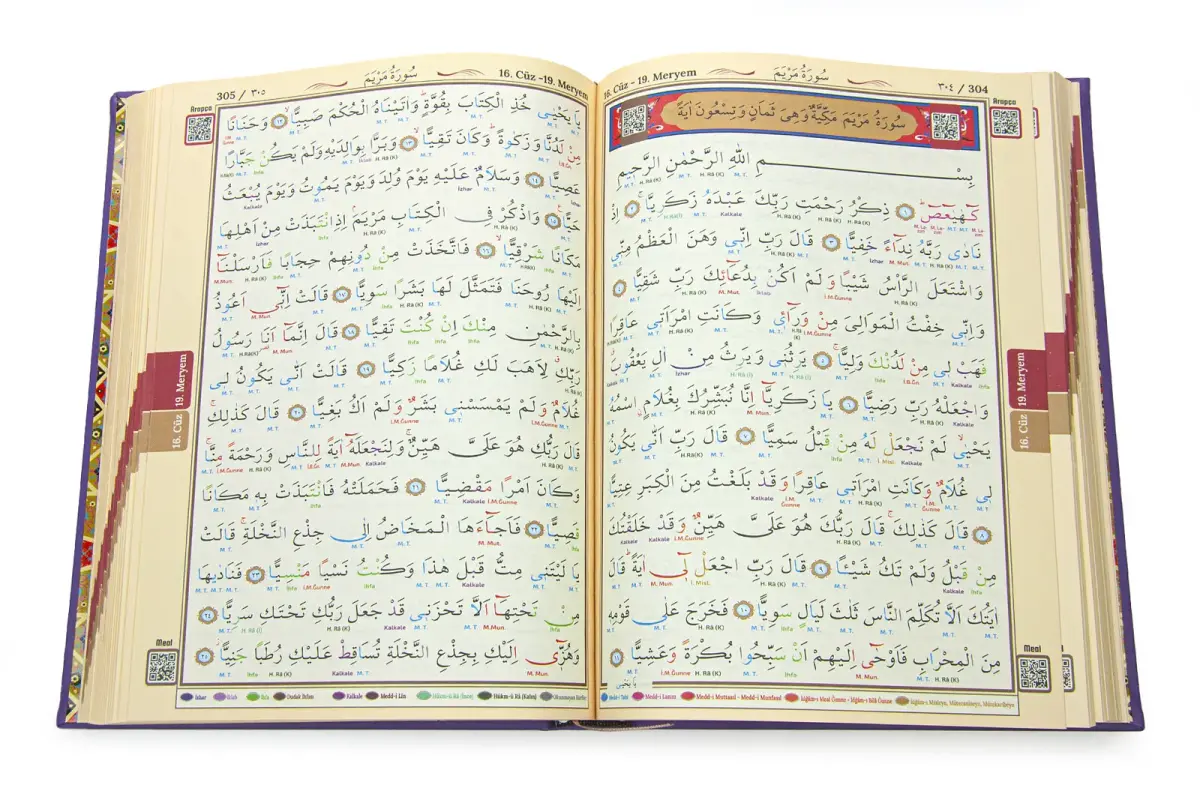 ٣٠٤ / 304
سُورَةُ مَرْيَمَ
16. Cüz - 19. Meryem
Arapça
سُورَةُ مَرْيَمَ مَكِّيَّةٌ وَهِيَ ثَمَانٍ وَتِسْعُونَ اٰيَةً
بِسْمِ اللّٰهِ الرَّحْمٰنِ الرَّحِيمِ
كٓهٰيٰعٓصٓ ﴿١﴾ ذِكْرُ رَحْمَتِ رَبِّكَ عَبْدَهُ زَكَرِيَّا ﴿٢﴾ اِذْ
نَادٰى رَبَّهُ نِدَٓاءً خَفِيًّا ﴿٣﴾ قَالَ رَبِّ اِنّ۪ي وَهَنَ الْعَظْمُ مِنّ۪ي
وَاشْتَعَلَ الرَّأْسُ شَيْبًا وَلَمْ اَكُنْ بِدُعَٓائِكَ رَبِّ شَقِيًّا ﴿٤﴾
وَاِنّ۪ي خِفْتُ الْمَوَالِيَ مِنْ وَرَٓاء۪ي وَكَانَتِ امْرَاَت۪ي عَاقِرًا
فَهَبْ ل۪ي مِنْ لَدُنْكَ وَلِيًّا ﴿٥﴾ يَرِثُن۪ي وَيَرِثُ مِنْ اٰلِ يَعْقُوبَ
وَاجْعَلْهُ رَبِّ رَضِيًّا ﴿٦﴾ يَا زَكَرِيَّٓا اِنَّا نُبَشِّرُكَ بِغُلَامٍ اسْمُهُ
يَحْيٰى لَمْ نَجْعَلْ لَهُ مِنْ قَبْلُ سَمِيًّا ﴿٧﴾ قَالَ رَبِّ اَنّٰى يَكُونُ
ل۪ي غُلَامٌ وَكَانَتِ امْرَاَت۪ي عَاقِرًا وَقَدْ بَلَغْتُ مِنَ الْكِبَرِ عِتِيًّا
﴿٨﴾ قَالَ كَذٰلِكَ قَالَ رَبُّكَ هُوَ عَلَيَّ هَيِّنٌ وَقَدْ خَلَقْتُكَ
مِنْ قَبْلُ وَلَمْ تَكُ شَيْئًا ﴿٩﴾ قَالَ رَبِّ اجْعَلْ ل۪ٓي اٰيَةً قَالَ
اٰيَتُكَ اَلَّا تُكَلِّمَ النَّاسَ ثَلٰثَ لَيَالٍ سَوِيًّا ﴿١٠﴾ فَخَرَجَ عَلٰى قَوْمِه۪
مِنَ الْمِحْرَابِ فَاَوْحٰٓى اِلَيْهِمْ اَنْ سَبِّحُوا بُكْرَةً وَعَشِيًّا ﴿١١﴾
19. Meryem
16. Cüz
Meal
Medd-i Tabii Medd-i Lazım Medd-i Muttasıl - Medd-i Munfasıl
16. Cüz -19. Meryem
سُورَةُ مَرْيَمَ
305 / ٣٠٥
Arapça
يَا يَحْيٰى خُذِ الْكِتَابَ بِقُوَّةٍ وَاٰتَيْنَاهُ الْحُكْمَ صَبِيًّا ﴿١٢﴾ وَحَنَانًا
مِنْ لَدُنَّا وَزَكٰوةً وَكَانَ تَقِيًّا ﴿١٣﴾ وَبَرًّا بِوَالِدَيْهِ وَلَمْ يَكُنْ جَبَّارًا
عَصِيًّا ﴿١٤﴾ وَسَلَامٌ عَلَيْهِ يَوْمَ وُلِدَ وَيَوْمَ يَمُوتُ وَيَوْمَ يُبْعَثُ
حَيًّا ﴿١٥﴾ وَاذْكُرْ فِي الْكِتَابِ مَرْيَمَ اِذِ انْتَبَذَتْ مِنْ اَهْلِهَا
مَكَانًا شَرْقِيًّا ﴿١٦﴾ فَاتَّخَذَتْ مِنْ دُونِهِمْ حِجَابًا فَاَرْسَلْنَٓا
اِلَيْهَا رُوحَنَا فَتَمَثَّلَ لَهَا بَشَرًا سَوِيًّا ﴿١٧﴾ قَالَتْ اِنّ۪ٓي اَعُوذُ
بِالرَّحْمٰنِ مِنْكَ اِنْ كُنْتَ تَقِيًّا ﴿١٨﴾ قَالَ اِنَّمَٓا اَنَا رَسُولُ
رَبِّكِ لِاَهَبَ لَكِ غُلَامًا زَكِيًّا ﴿١٩﴾ قَالَتْ اَنّٰى يَكُونُ ل۪ي
غُلَامٌ وَلَمْ يَمْسَسْن۪ي بَشَرٌ وَلَمْ اَكُ بَغِيًّا ﴿٢٠﴾ قَالَ كَذٰلِكِ
قَالَ رَبُّكِ هُوَ عَلَيَّ هَيِّنٌ وَلِنَجْعَلَهُٓ اٰيَةً لِلنَّاسِ وَرَحْمَةً مِنَّا
وَكَانَ اَمْرًا مَقْضِيًّا ﴿٢١﴾ فَحَمَلَتْهُ فَانْتَبَذَتْ بِه۪ مَكَانًا
قَصِيًّا ﴿٢٢﴾ فَاَجَٓاءَهَا الْمَخَاضُ اِلٰى جِذْعِ النَّخْلَةِ قَالَتْ
يَا لَيْتَن۪ي مِتُّ قَبْلَ هٰذَا وَكُنْتُ نَسْيًا مَنْسِيًّا ﴿٢٣﴾ فَنَادٰيهَا
مِنْ تَحْتِهَٓا اَلَّا تَحْزَن۪ي قَدْ جَعَلَ رَبُّكِ تَحْتَكِ سَرِيًّا ﴿٢٤﴾
وَهُزّ۪ٓي اِلَيْكِ بِجِذْعِ النَّخْلَةِ تُسَاقِطْ عَلَيْكِ رُطَبًا جَنِيًّا ﴿٢٥﴾
19. Meryem
16. Cüz
Meal
İzhar İklab İhfa Dudak İhfası Kalkale Medd-i Lin